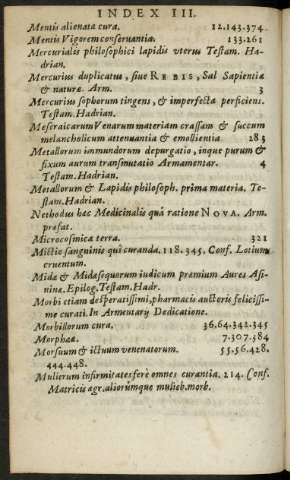 INDEX III.
Mentis alienata cura. 12.143.374.
Mentis Vigorem conservantia. 133.261
Mercurialis philosophici lapidis usus Testam. Ha-
drian.
Mercurius duplicatus, sive REBIS, Sal Sapientiæ
& naturæ. Arm. 3
Mercurius sophorum tingens, & imperfecta perficiens.
Testam. Hadrian.
Meseraicarum Venarum materiam crassam & succum
melancholicum attenuantia & emollientia 283
Metallorum immundorum depurgatio, inque purum &
fixum aurum transmutatio Armamentar. 4
Testam. Hadrian.
Metallorum & Lapidis philosoph. prima materia. Te-
stam. Hadrian.
Nethodus hæc Medicinalis quâ ratione NOVA. Arm.
præfat.
Microcosmica terra. 321
Mictio sanguinis qui curanda. 118.345. Conf. Lotium
cruentum.
Midæ & Midasequorum iudicum præmium Aures Asi-
ninæ. Epilog. Testam. Hadr.
Morbi etiam desperatissimi, pharmacis auctoris felicissi-
me curati. In Armentary Dedicatione.
Morbillorum cura. 36.64.342.345
Morphæa. 7.307.384
Morsuum & ictuum venenatorum. 55.56.428.
444.448.
Mulierum infirmitates fere omnes curantia. 214. Conf.
Matricis ægr. aliorumque mulieb. morb.